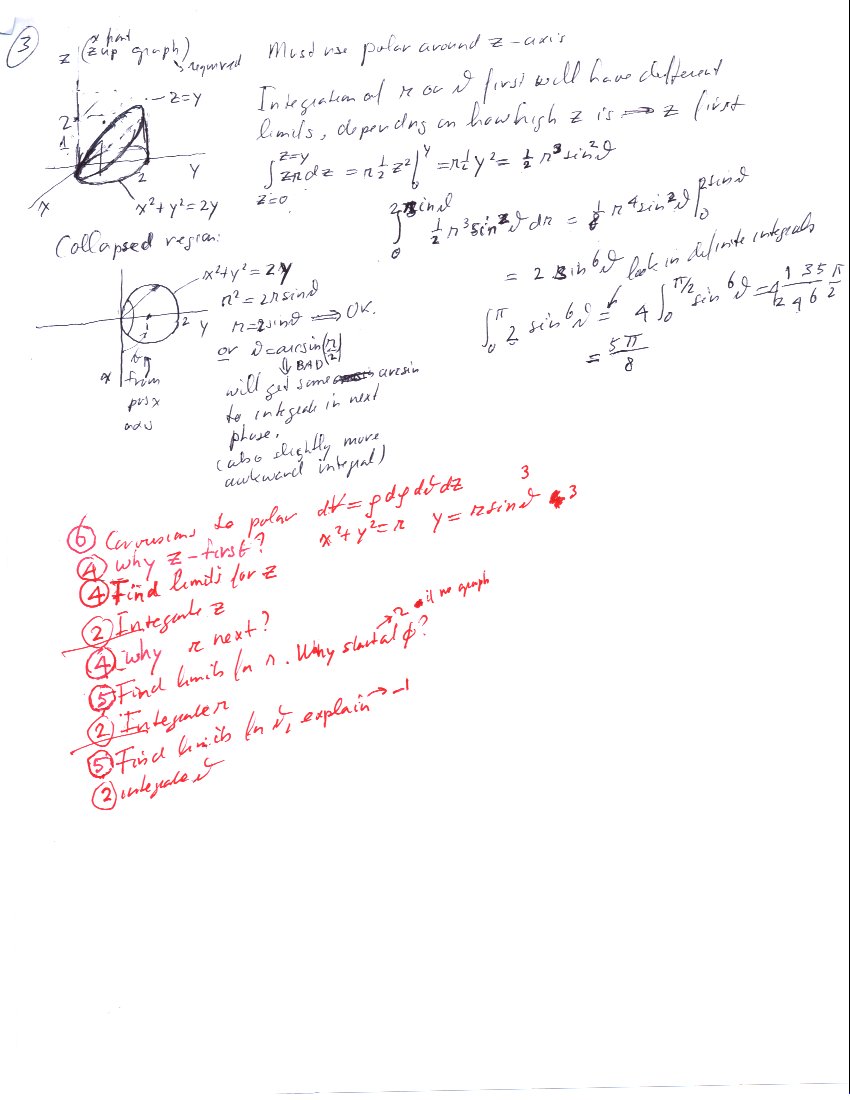 ③
x front
z (z up graph)
required
Must use polar around z-axis
z=y
2
1
y
2
x
x²+y²=2y
Integration of r or ϑ first will have different
limits, depending on how high z is ⟹ z first
∫_{z=0}^{z=y} zr dz = r ½ z² |_0^y = r ½ y² = ½ r³ sin²ϑ
∫_0^{2 sinϑ} ½ r³ sin²ϑ dr = ⅛ r⁴ sin²ϑ |_0^{2 sinϑ}
= 2 sin⁶ϑ
look in definite integrals
∫_0^π 2 sin⁶ϑ = 4 ∫_0^{π/2} sin⁶ϑ = 4 1 3 5 π / 2 4 6 2
= 5π/8
Collapsed region:
x²+y²=2y
r²=2r sinϑ
r=2sinϑ ⟹ OK.
or ϑ=arcsin(r/2)
⇓ BAD
will get some arcsin
to integrate in next
phase.
(also slightly more
awkward integral)
1
2
y
x
from
pos x
axis
⑥ Conversions to polar dV=ρdρdϑdz
3
x²+y²=r y=r sinϑ 3
④ why z-first?
④ Find limits for z
② Integrate z
④ why r next?
⑤ Find limits for r. Why start at ϕ?
→2 if no graph
② Integrate r
⑤ Find limits for ϑ, explain →-1
② integrate ϑ